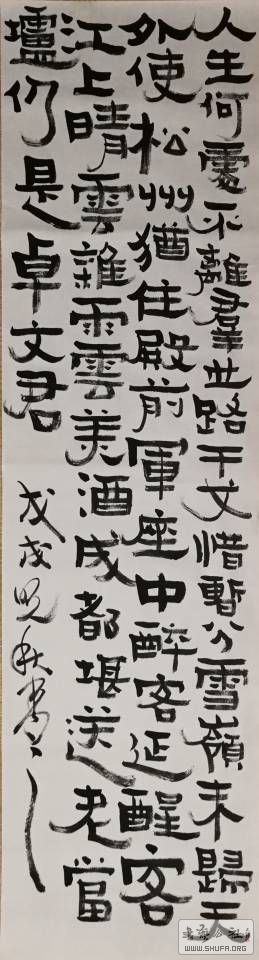 人生何處不離羣世路干戈惜暫分雪嶺未歸天
外使松州猶住殿前軍座中醉客延醒客
江上晴雲雜雨雲美酒成都堪送老當
壚仍是卓文君
戊戌晚秋書
WWW.SHUFA.ORG